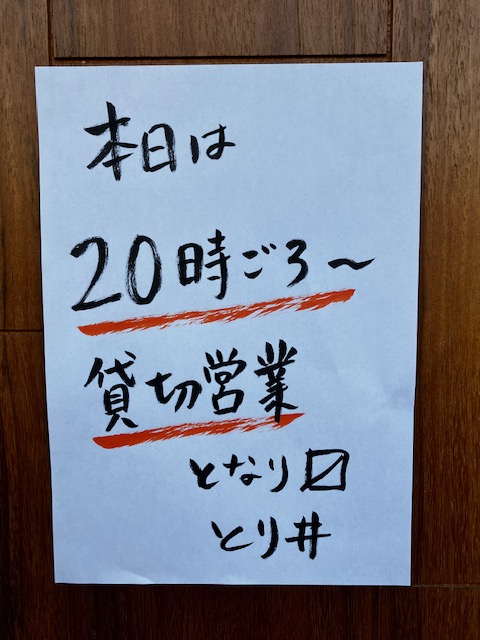 本日は
20時ごろ〜
貸切営業
となり〼
とり井